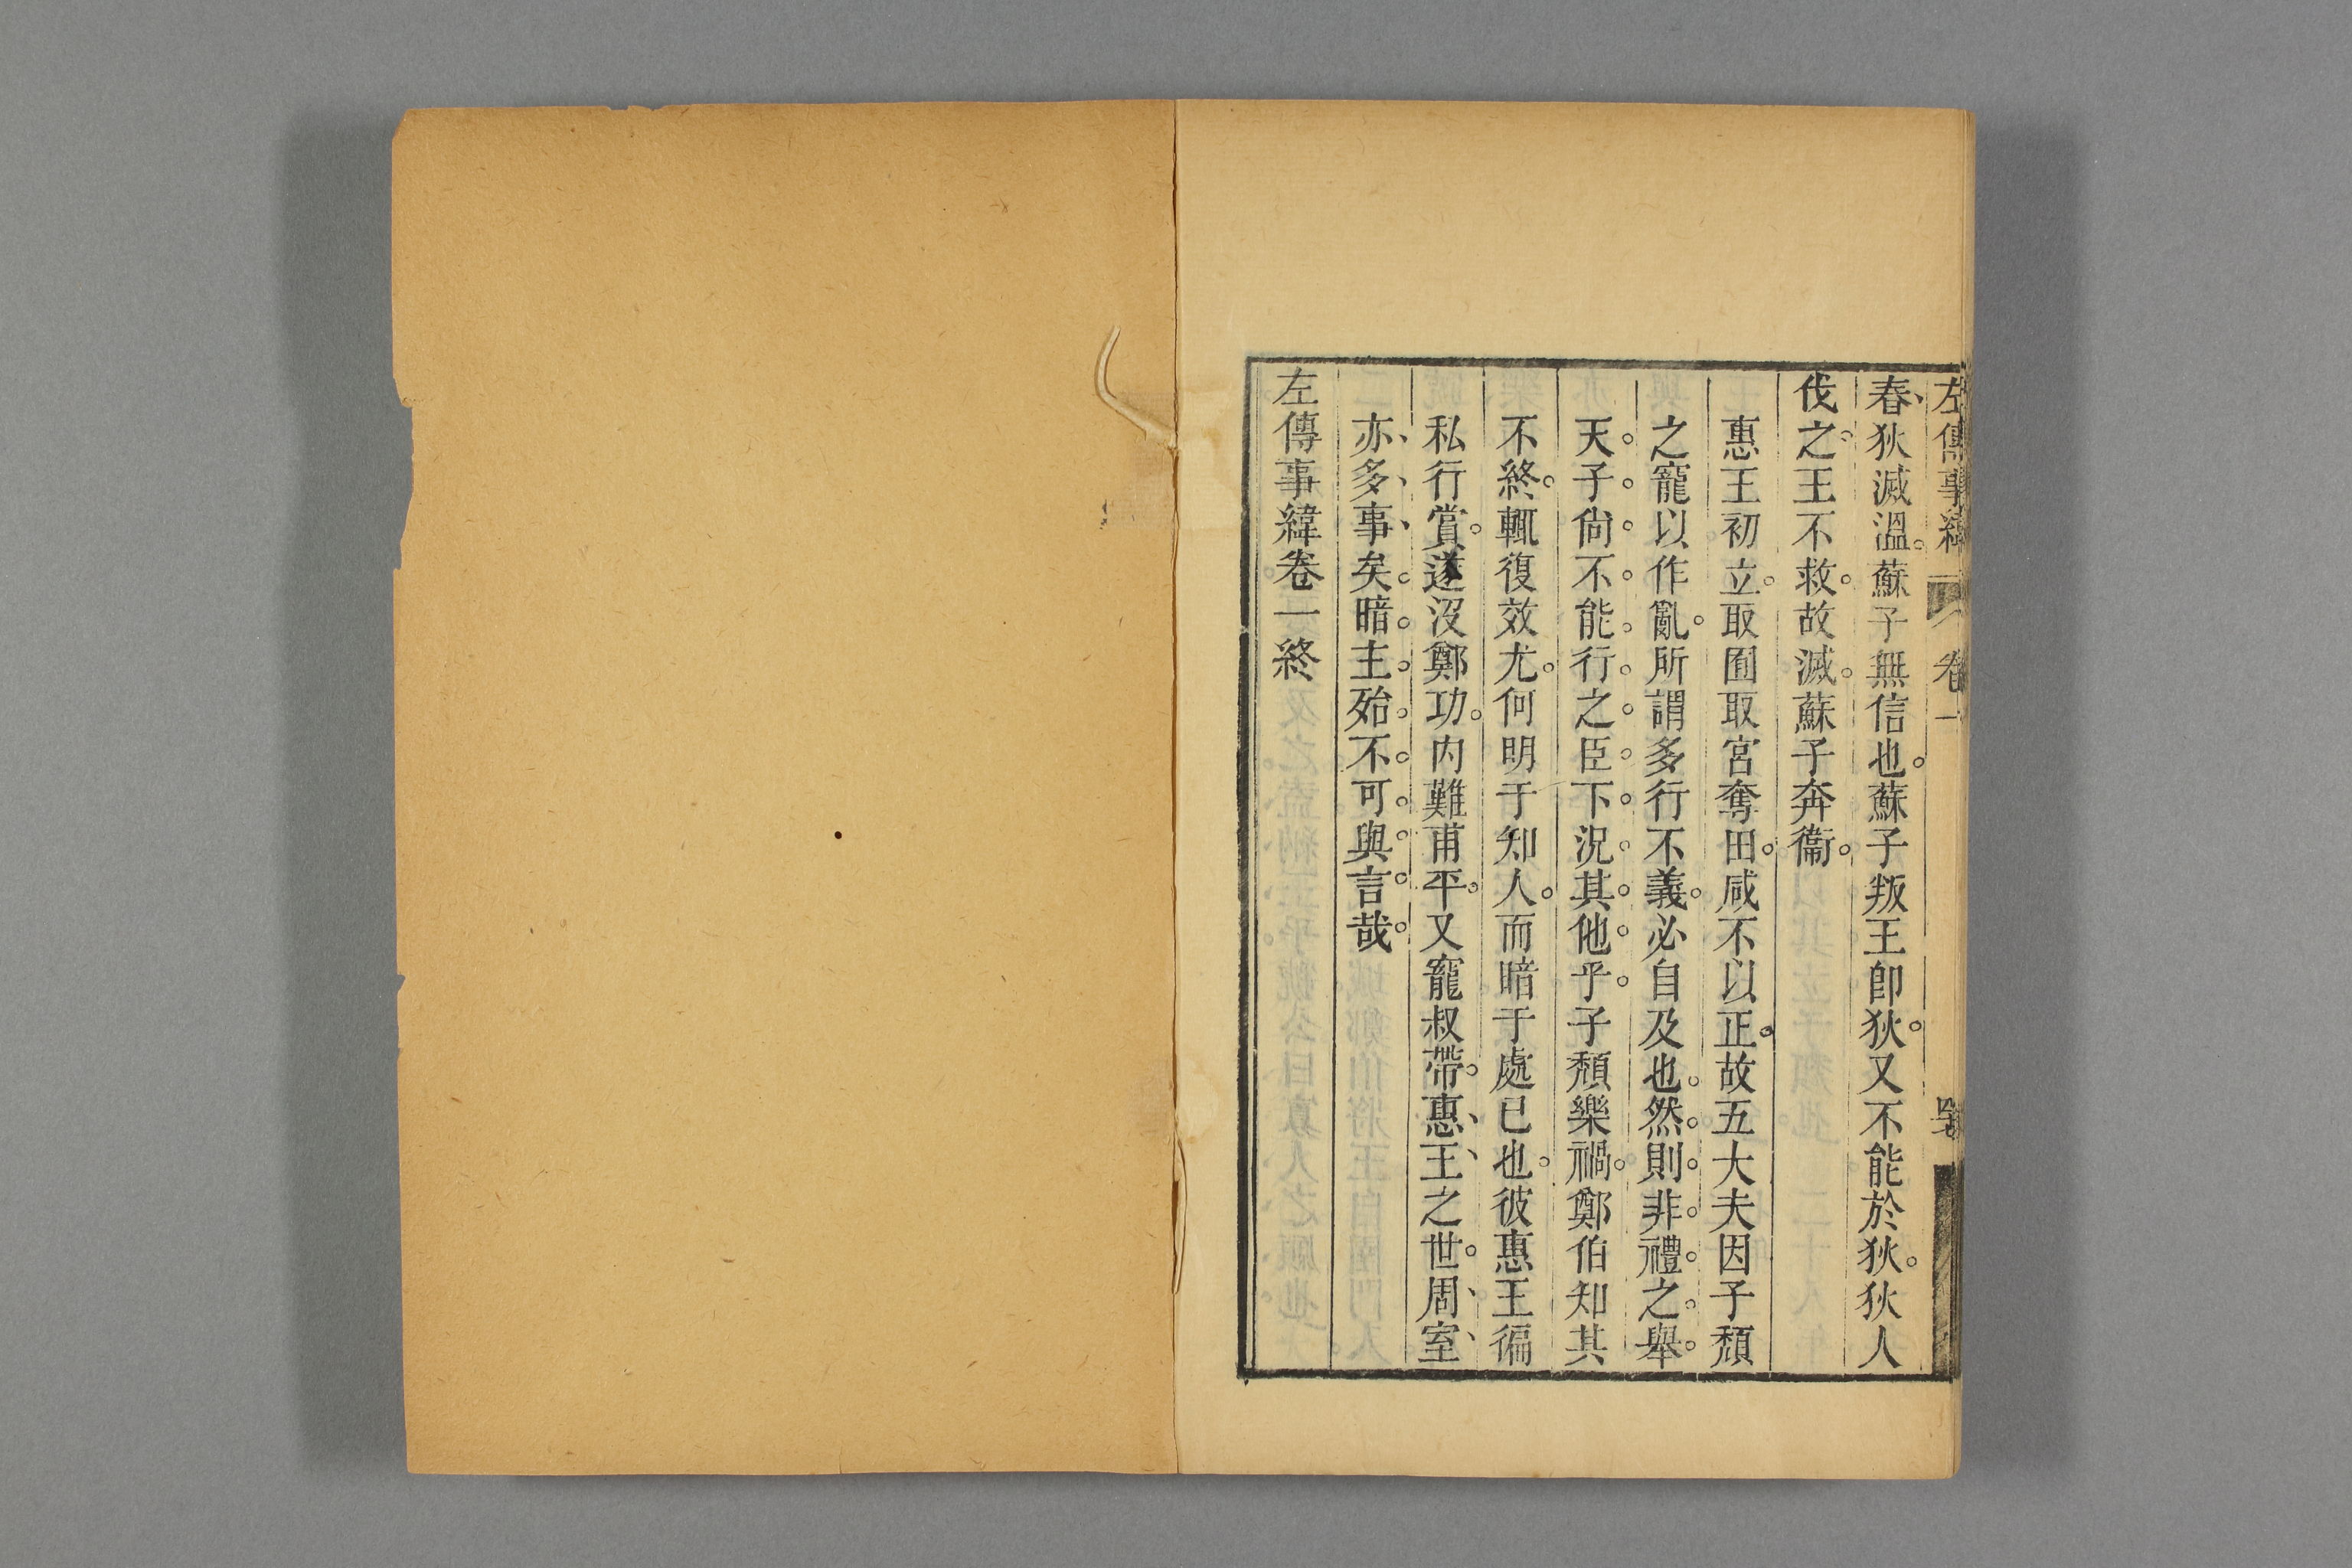 左傳事緯　卷一
春狄滅溫。蘇子無信也。蘇子叛王卽狄。又不能於狄。狄人
伐之。王不救。故滅。蘇子奔衞。
惠王初立。取囿取宮奪田。咸不以正。故五大夫因子頹
之寵以作亂。所謂多行不義。必自及也。然則非禮之舉。
天子尙不能行之臣下。況其他乎。子頹樂禍。鄭伯知其
不終。輒復效尤。何明于知人。而暗于處已也。彼惠王徧
私行賞。遂沒鄭功。內難甫平。又寵叔帶。惠王之世。周室
亦多事矣。暗主殆不可與言哉。
左傳事緯卷一終